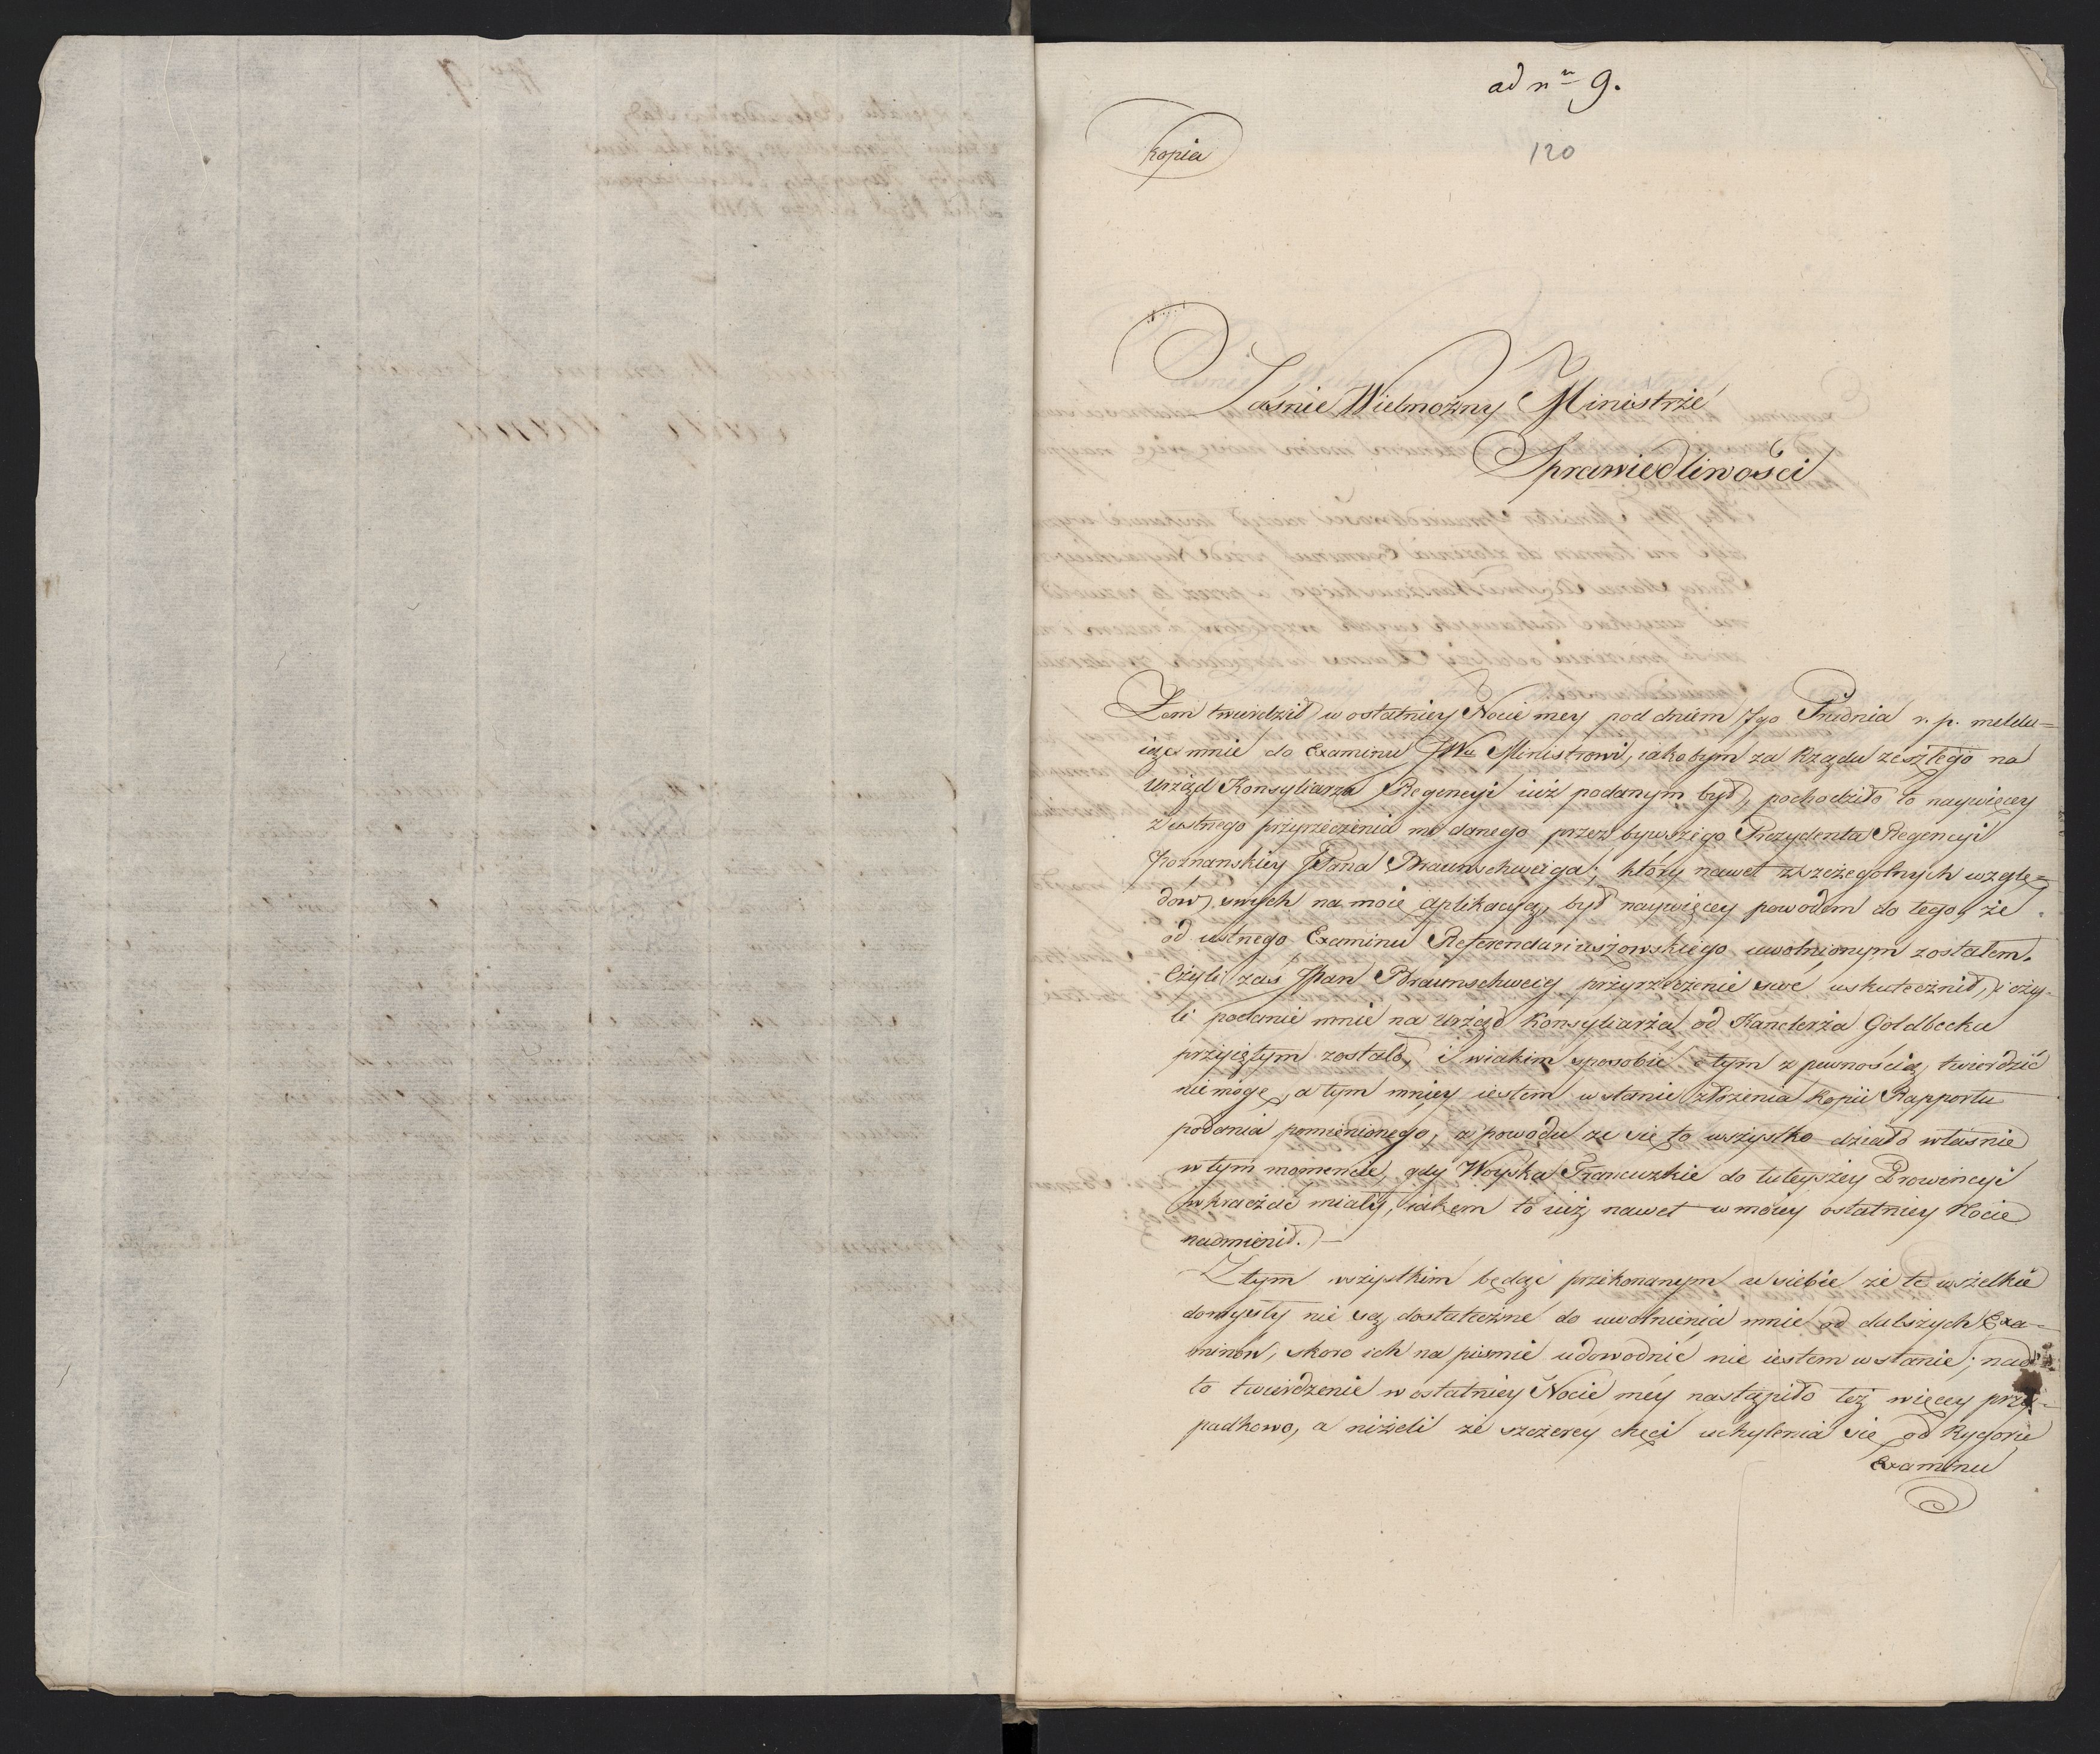 ad nrm 9.
kopia
120
Jaśnie Wielmożny Ministrze
Sprawiedliwości
Żem twierdził w ostatniey Nocie mey pod dniem 7go Grudnia r. p. meldu=
iąc mnie do Examinu JWu Ministrowi, iakobym za Rządu zeszłego na
Urząd Konsyliarza Regencyi iuż podanym był, pochodziło to naywięcey
z ustnego przyrzeczenia mi danego przez bywszego Prezydenta Regencyi
Poznanskiey JPana Braunschweiga; który nawet z szczegolnych wzglę=
dów swych na moię aplikacyą, był naywięcey powodem do tego, że
od ustnego Examinu Referendariuszowskiego uwolnionym zostałem.
Czyli zaś JPan Braunschweig przyrzeczenie swe uskutecznił, i czy-
li podanie mnie na Urząd Konsyliarza od Kanclerza Goldbecka
przyiętym zostało, i w iakim sposobie o tym z pewnością twierdzić
nie mogę, a tym mniey iestem w stanie złożenia kopii Rapportu
podania pomienionego, z powodu że się to wszystko działo właśnie
w tym momencie, gdy Woyska Francuzkie do tuteyszey Prowincyi
wkraczać miały, iakem to iuż nawet w moiey ostatniey Nocie
nadmienił. —
Z tym wszystkim będąc przekonanym u siebie że te wszelkie
domysły nie są dostateczne do uwolnienia mnie od dalszych Exa=
minów, skoro ich na pismie udowodnić nie iestem w stanie; nad
to twierdzenie w ostatniey Nocie mey nastąpiło też więcey przy=
padkowo, a niżeli ze szczerey chęci uchylenia się od Rygoru
Examinu